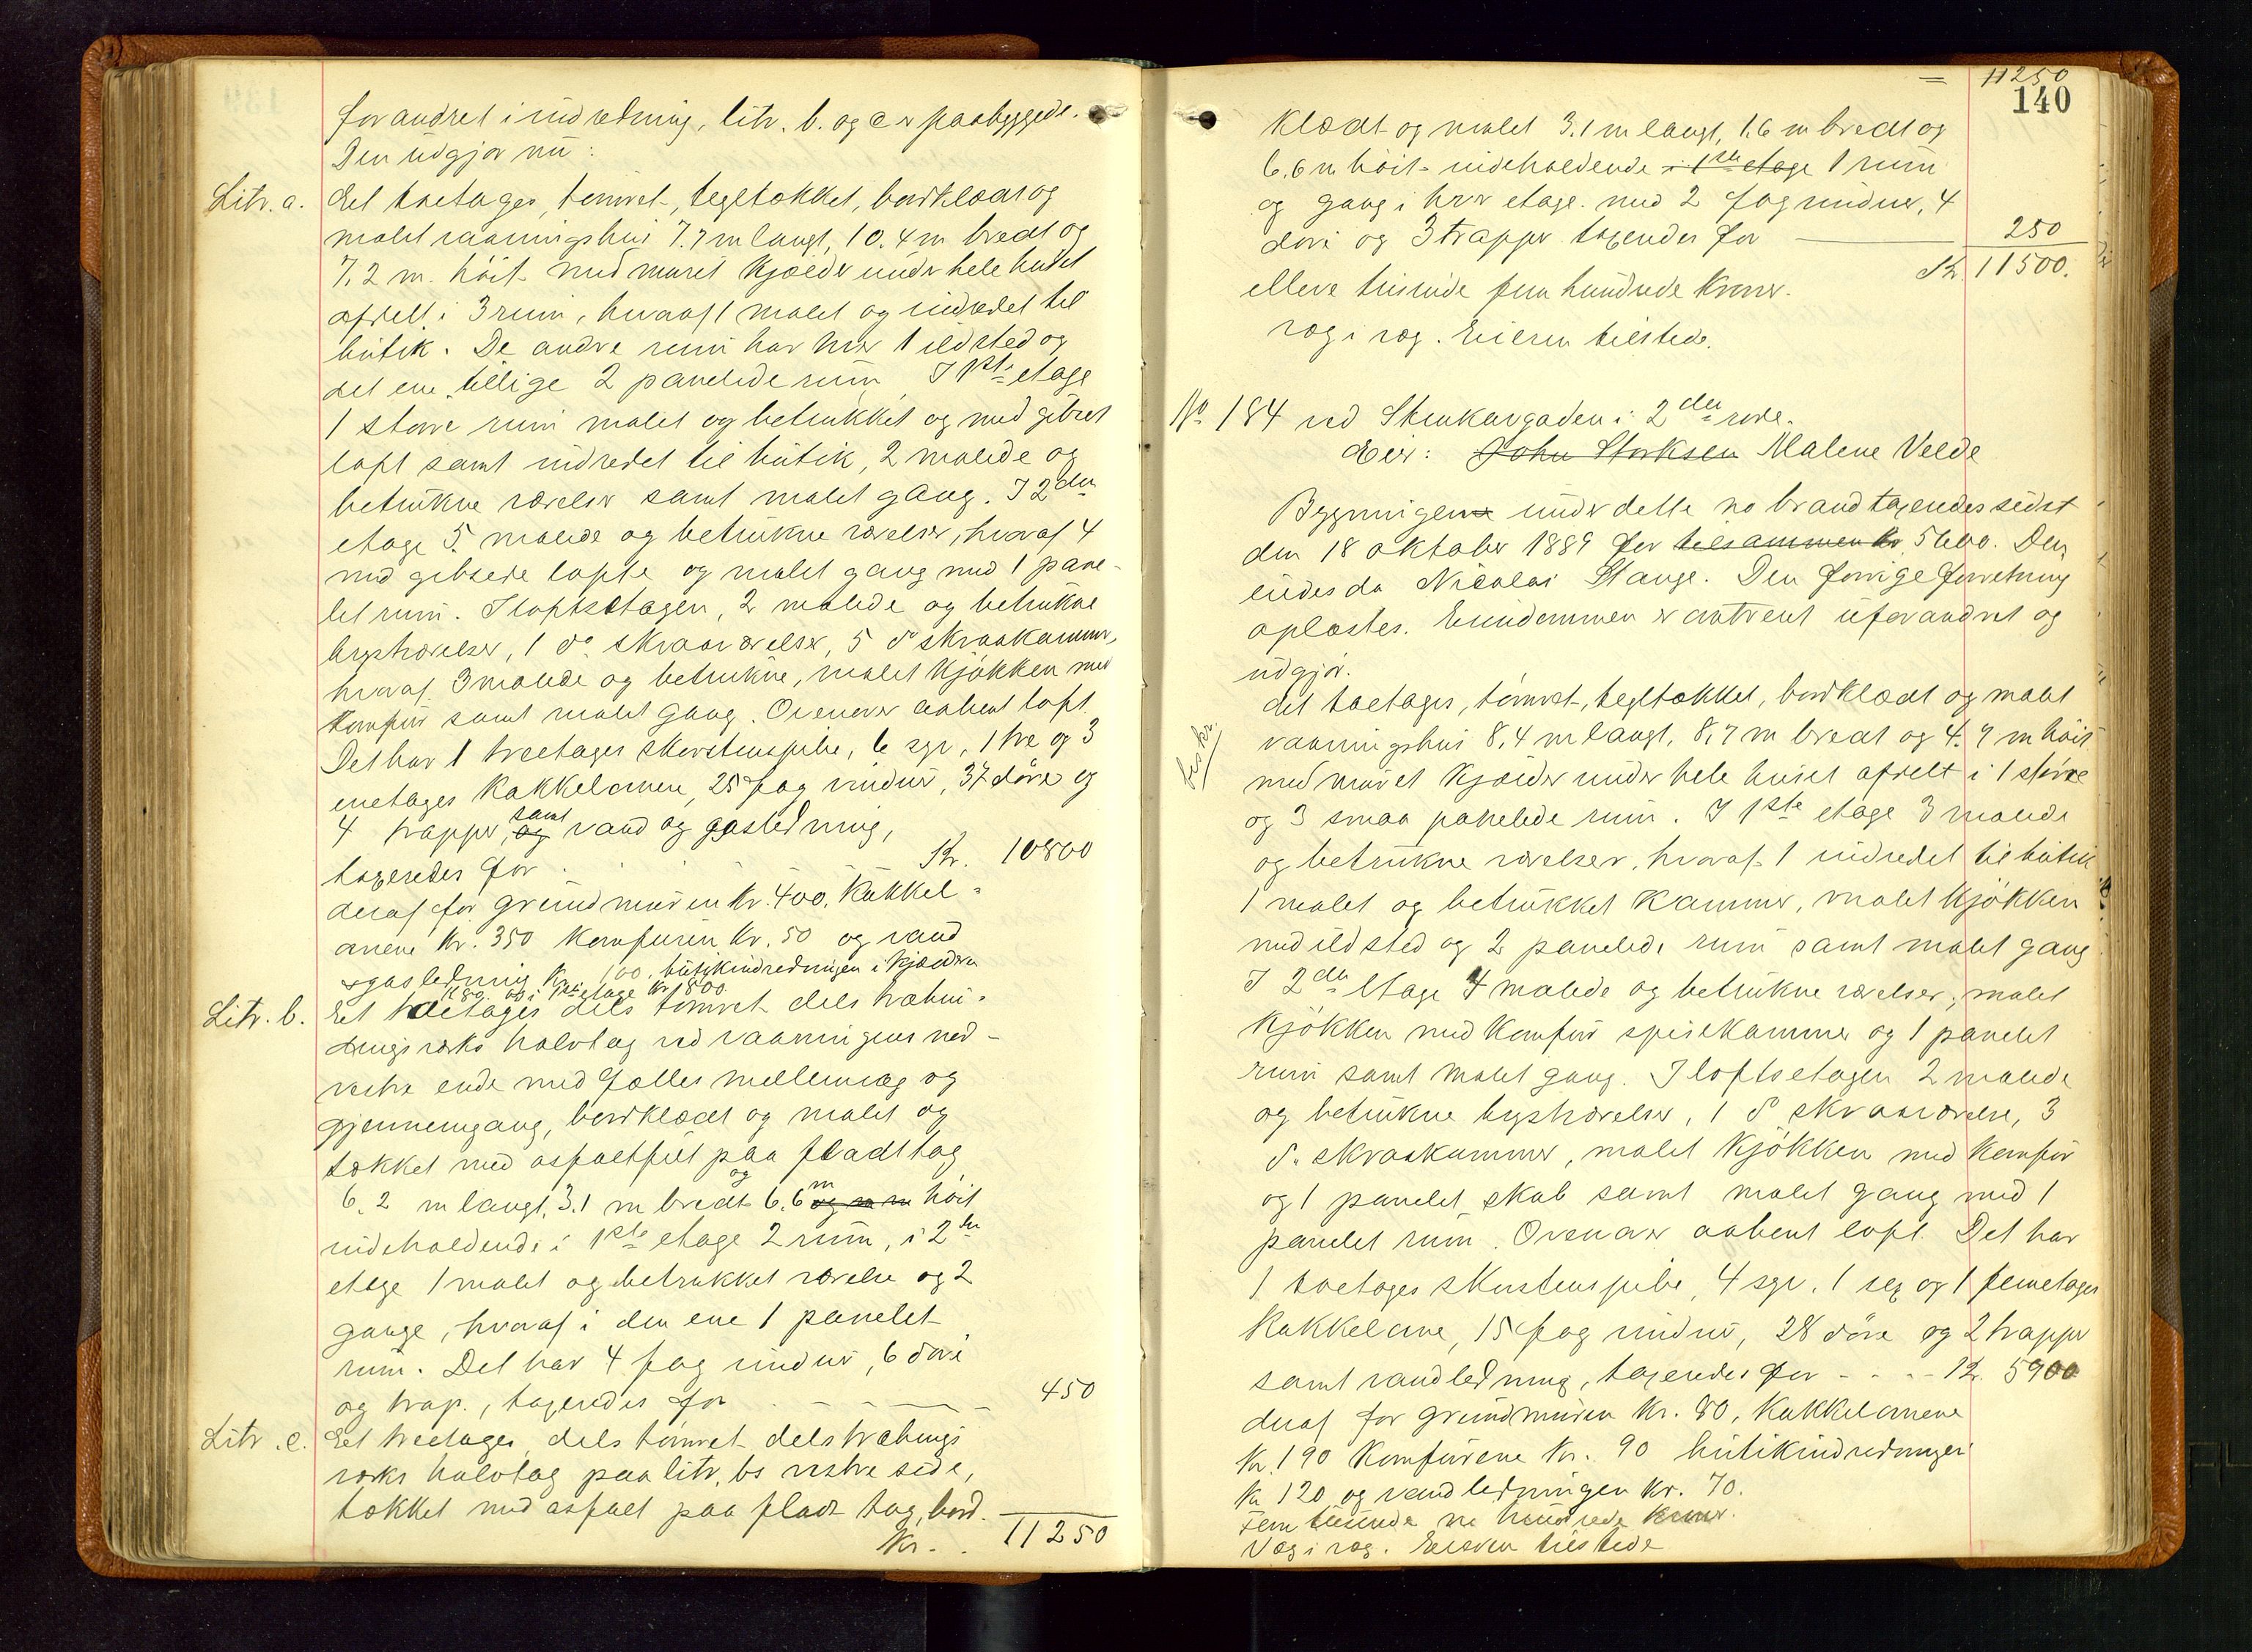 forandret i indretning, litr. b. og c er paabyggede.
Den udgjør nu:
Litr. a. Et toetages, tømret, tegltækket, bordklædt og
malet vaaningshus 7.7 m langt, 10.4 m bredt og
7,2 m. høit med muret kjælder under hele huset
afdelt i 3 rum, hvoraf 1 malet og indredet til
butik. De andre rum har hver 1 ildsted og
det ene tillige 2 panelede rum I 1ste etage
1 større rum malet og betrukket og med gibset
loft samt indredet til butik, 2 malede og
betrukne værelser samt malet gang. I 2den
etage 5 malede og betrukne værelser, hvoraf 4
med gibsede lofte og malet gang med 1 pane-
let rum. I loftsetagen, 2 malede og betrukne
kvistværelser, 1 do skraaværelser, 5 do skraakammer,
hvoraf 3 malede og betrukne, malet kjøkken med
komfur samt malet gang. Ovenover aabent loft.
Det har 1 treetages skorstenspibe, 6 sgr., 1 tre og 3
enetages kakkelovne, 25 fag vinduer, 37 døre og
4 trapper, og samt vand og gasledning,
taxeredes for . . . Kr. 10800
deraf for grundmuren kr. 400, kakkel-
ovnene kr. 350 komfuren kr. 50 og vand
gasledning kr. 100. butikindredningen i kjælderen
k 80. og i 1ste etage kr 1800.
Litr. b. Et toetages dels tømret dels træbin-
dingsværks halvtag ved vaaningens nord-
vestre ende med fælles mellemvæg og
gjennemgang, bordklædt og malet og
tækket med asfaltfilt paa fladt tag
6.2 m langt, 3.1 m bredt og 6.6 m og m m høit
indeholdende i 1ste etage 2 rum, i 2den
etage 1 malet og betrukket værelse og 2
gange, hvoraf i den ene 1 panelet
rum. Det har 4 fag vinduer, 6 døre
og trap., taxeredes for - - - 450
Litr. c. Et treetages, dels tømret dels træbings
værks halvtag paa litr. bs vestre side,
tækket med asfalt paa fladt tag, bord-
Kr. . 11250
= 11250
140
klædt og malet 3.1 m langt, 1.6 m bredt og
6.6 m høit indeholdende i 1ste etage 1 rum
og gang i hver etage. med 2 fag vinduer, 4
døre og 3 trapper taxeredes for 250
Kr. 11500.
elleve tusinde fem hundrede kroner.
væg i væg. Eieren tilstede.
No 184 ved Stenkargaden i 2den rode.
Eier: John Storksen Malene Velde
Bygningerne under dette no brandtaxeredes sidst
den 18 oktober 1889 for tilsammen kr 5600. Den
eiedes da Nicolai Stange. Den forrige forretning
oplæstes. Eiendommen er omtrent uforandret og
udgjør.
beskr.
det toetages, tømret, tegltækket, bordklædt og malet
vaaningshus 8,4 m langt, 8,7 m bredt og 4.9 m høit
med muret kjælder under hele huset afdelt i 1 større
og 3 smaa panelede rum. I 1ste etage 3 malede
og betrukne værelser, hvoraf 1 indredet til butik
1 malet og betrukket kammer, malet kjøkken
med ildsted og 2 panelede rum samt malet gang
I 2den Etage 4 malede og betrukne værelser, malet
kjøkken med komfur spisekammer og 1 panelet
rum samt malet gang. I loftsetagen 2 malede
og betrukne kvistværelser, 1 do skraaværelse, 3
do. skraakammer, malet kjøkken med komfur
og 1 panelet skab samt malet gang med 1
panelet rum. Ovenover aabent loft. Det har
1 toetages skorstenspibe, 4 sgr. 1 sex og 1 femetages
kakkelovne, 15 fag vinduer, 28 døre og 2 trapper
samt vandledning, taxeredes for - - - - Kr. 5900
deraf for grundmuren kr. 80, kakkelovnene
kr. 190 komfurene kr. 90 butikindredningen
kr 120 og vandledningen kr. 70.
Fem tusinde ni hundrede kroner.
Væg i væg. Eieren tilstede